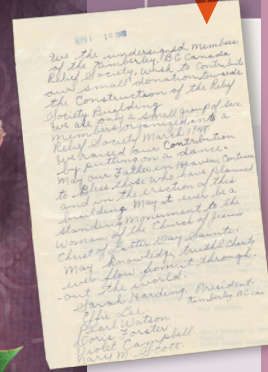 We the undersigned, Members
of the Kimberley, B.C. Canada
Relief Society, wish to Contribute
our small donation towards
the Construction of the Relief
Society Building
We are only a small group of six
members, organized into a
Relief Society March 1948.
We raised our Contribution
by putting on a dance.
May our Father in Heaven Continue
to Bless those who have planned
and in the erection of this
building. May it ever be a
standing Monument to the
Woman of the Church of Jesus
Christ of Latter Day Saints.
May knowledge, truth & Charity
ever flow from it through-
out the world.
Sarah Harding, President.
Effie Lee, Kimberley, B.C. Can
Pearl Watson
Doris Forster
Violet Campbell.
Mary M. Scott.